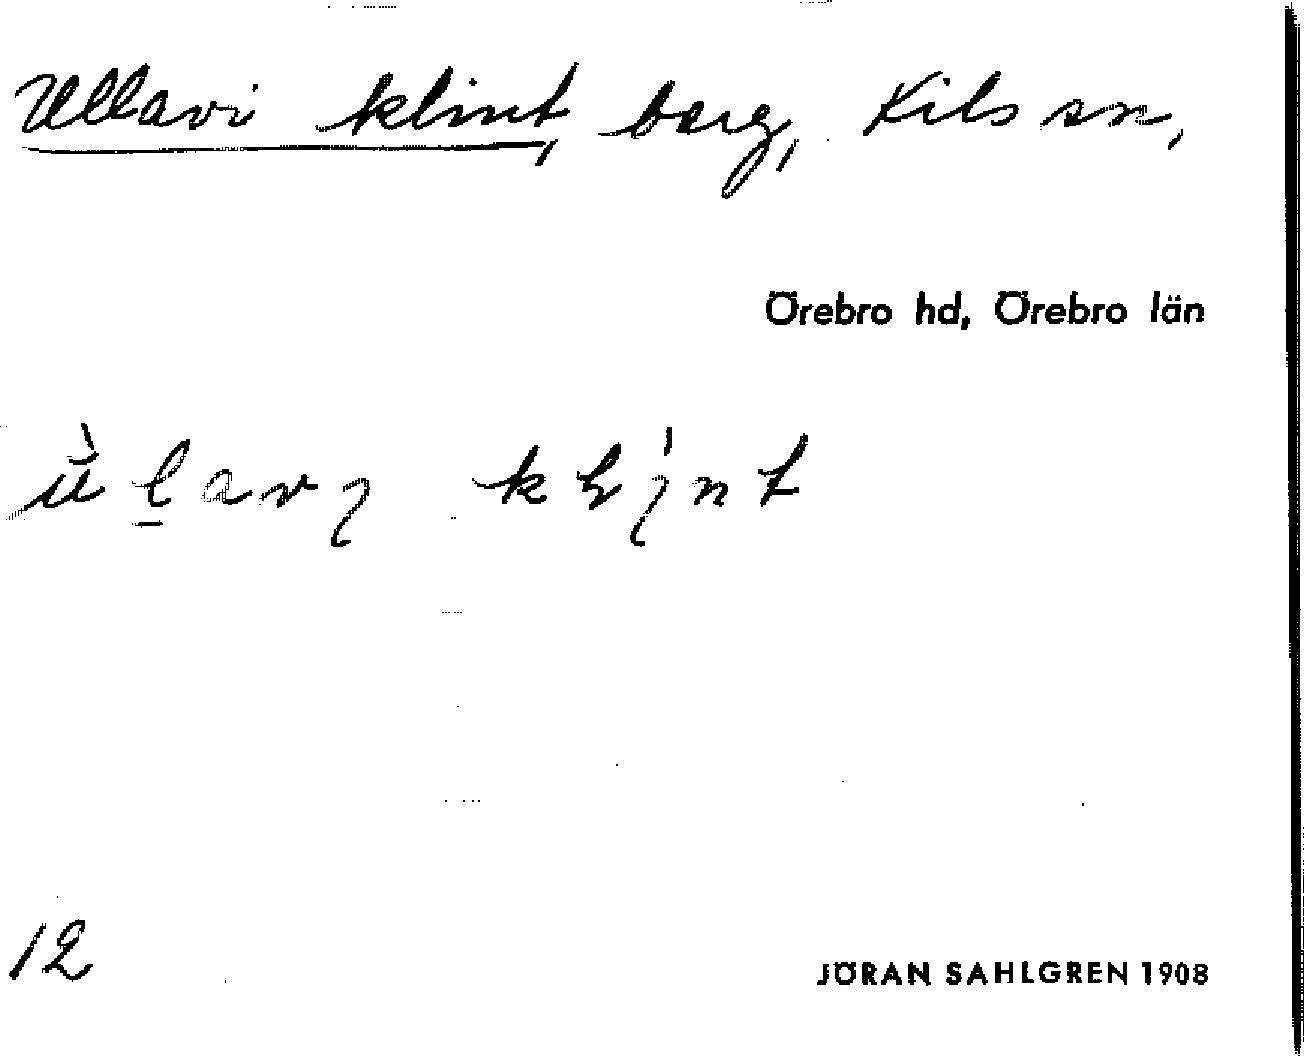 Ullavi klint, berg, Kils sn,
Örebro hd, Örebro län
12
JÖRAN SAHLGREN 1908